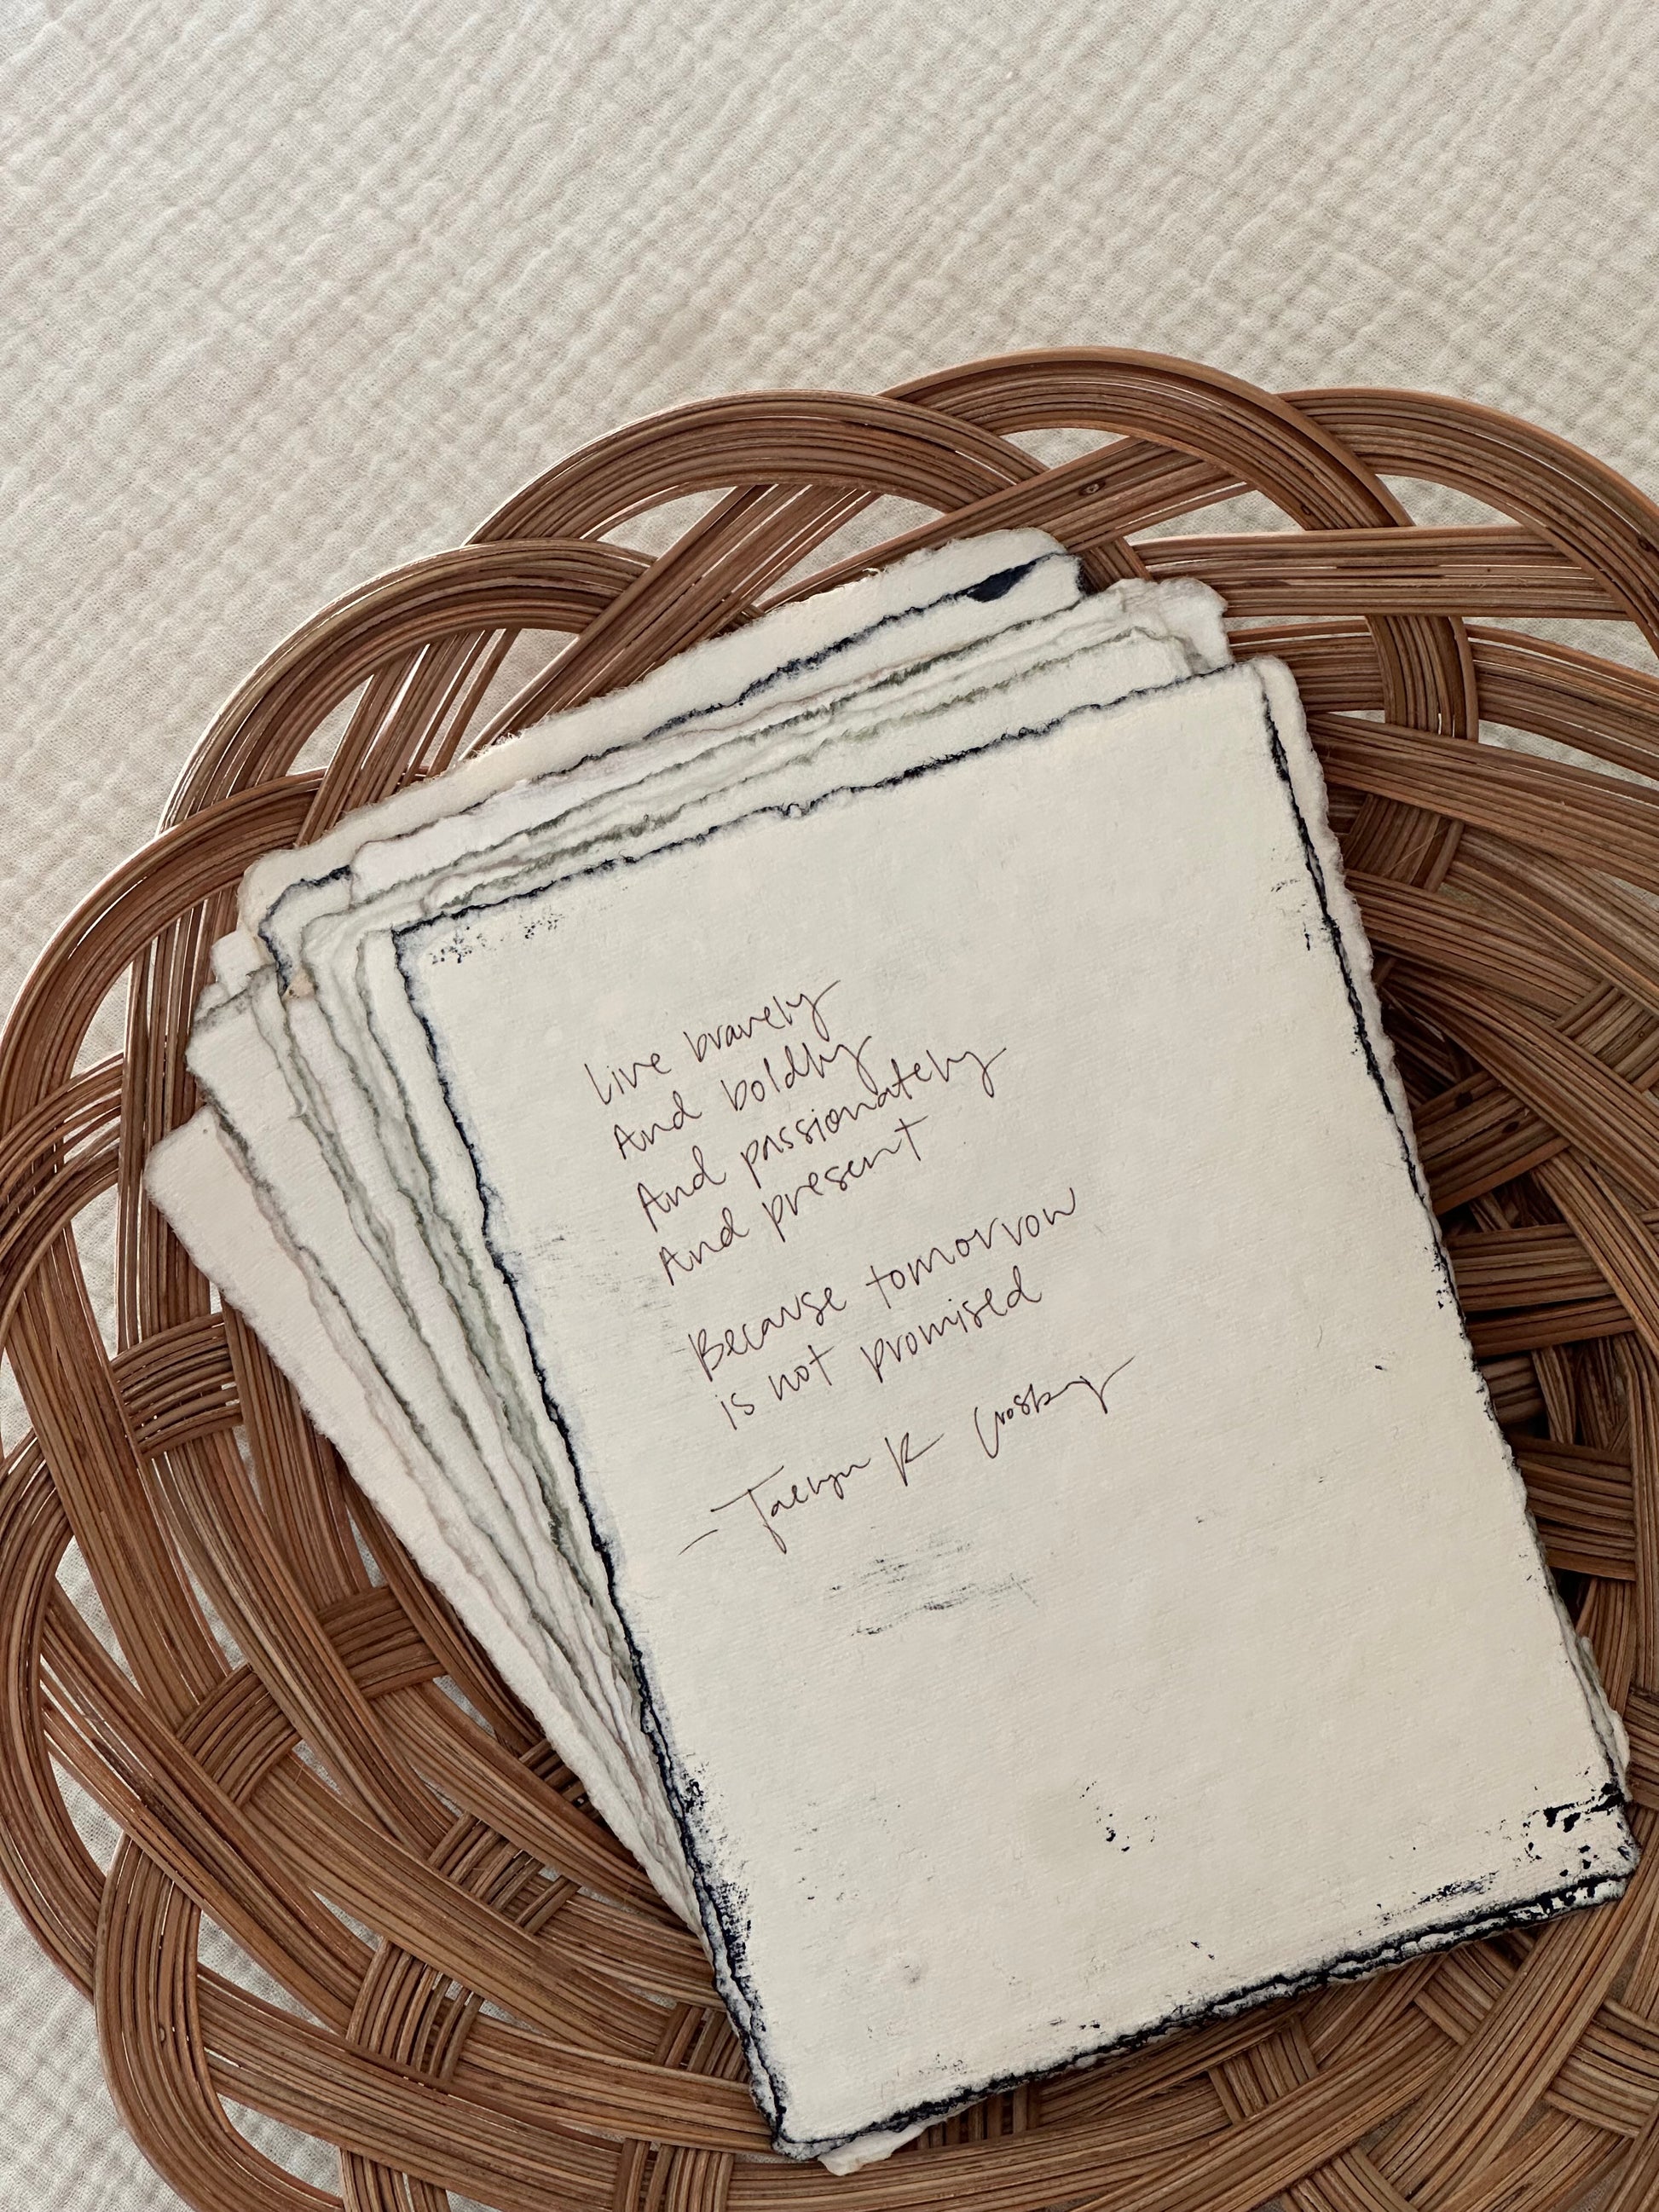 Live bravely
And boldly
And passionately
And present
Because tomorrow
is not promised
- Taeryn K Crosby